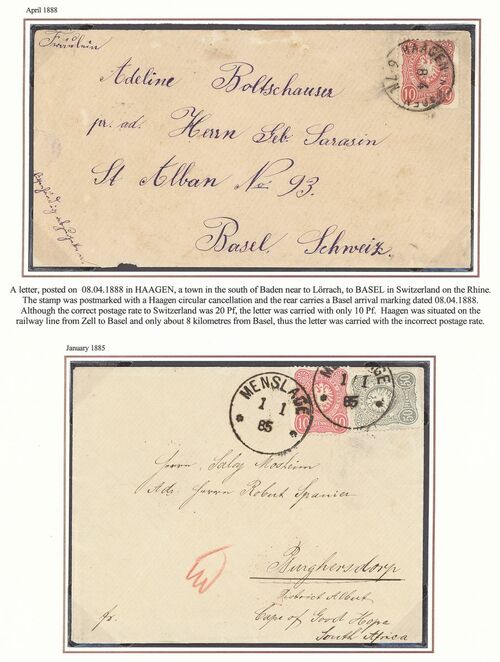 April 1888
Fräulein
Adeline Boltschauser
pr. ad. Herrn Geb. Sarasin
St Alban No. 93.
Basel. Schweiz.
10
HAAGEN
8 4
N 6-7
A letter, posted on 08.04.1888 in HAAGEN, a town in the south of Baden near to Lörrach, to BASEL in Switzerland on the Rhine.
The stamp was postmarked with a Haagen circular cancellation and the rear carries a Basel arrival marking dated 08.04.1888.
Although the correct postage rate to Switzerland was 20 Pf, the letter was carried with only 10 Pf. Haagen was situated on the
railway line from Zell to Basel and only about 8 kilometres from Basel, thus the letter was carried with the incorrect postage rate.
January 1885
MENSLAGE
1 1
85
10
MENSLAGE
1 1
85
50
Herrn Saly Mosheim
Adr. Herrn Robert Spanier
Burghersdorp
District Albert
Cape of Good Hope
South Africa
fr.